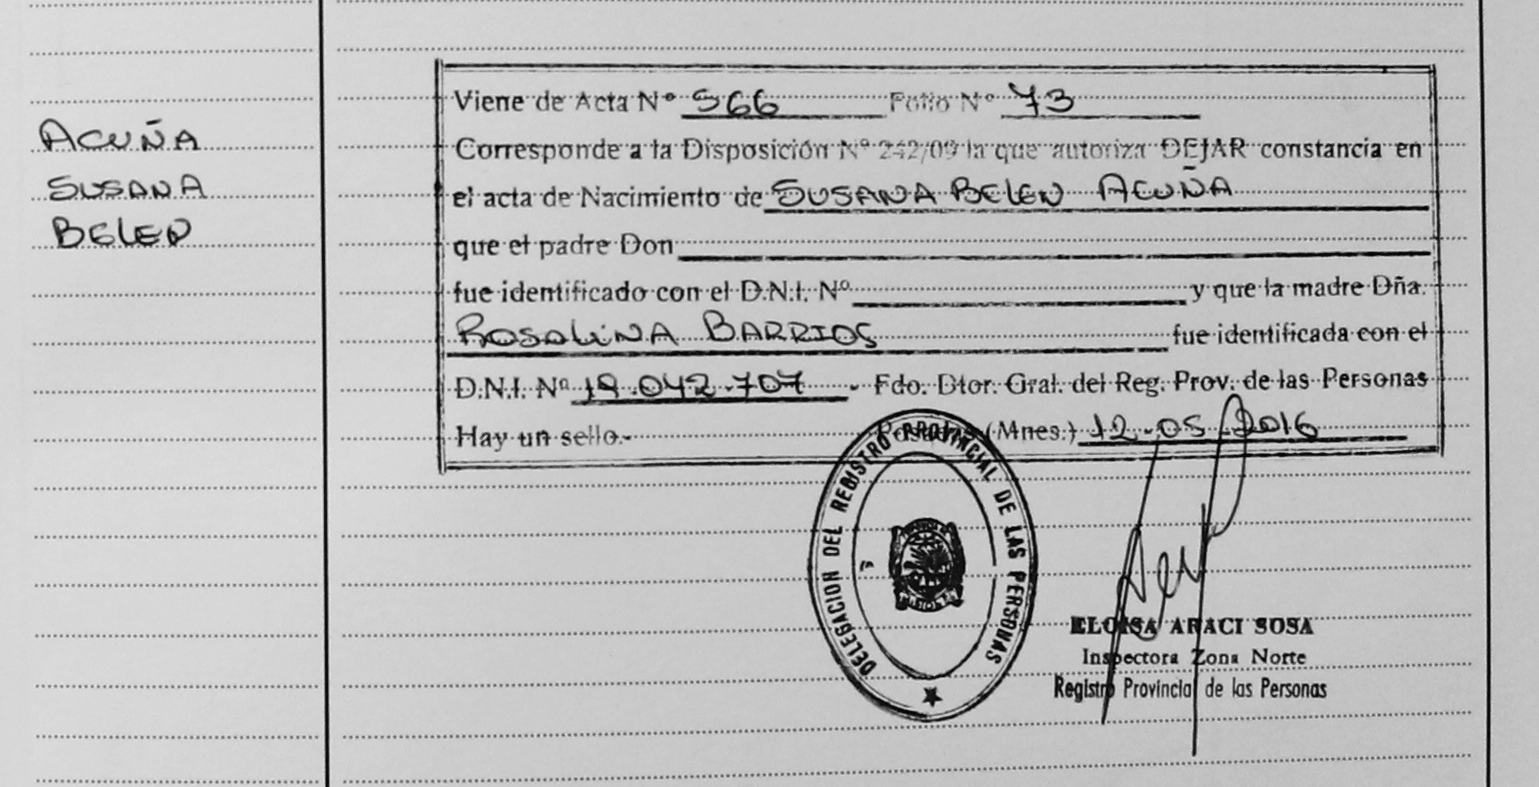 ACUÑA
SUSANA
BELEN
Viene de Acta Nº 566 Folio Nº 73
Corresponde a la Disposición Nº 242/09 la que autoriza DEJAR constancia en
el acta de Nacimiento de SUSANA BELEN ACUÑA
que el padre Don
fue identificado con el D.N.I. Nº y que la madre Dña.
ROSALINA BARRIOS fue identificada con el
D.N.I. Nº 19.042.707 - Fdo. Dtor. Gral. del Reg. Prov. de las Personas
Hay un sello.- Posadas (Mnes.) 12-05-2016
DELEGACION DEL REGISTRO PROVINCIAL DE LAS PERSONAS
ELOISA ARACI SOSA
Inspectora Zona Norte
Registro Provincial de las Personas